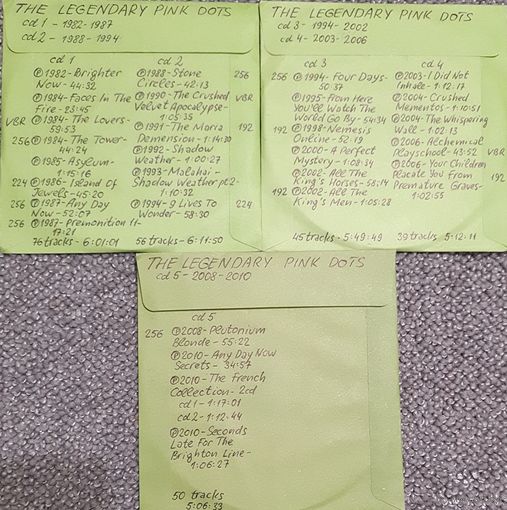 THE LEGENDARY PINK DOTS
cd 1 - 1982-1987
cd 2 - 1988-1994
cd 1
℗1982-Brighter
Now-44:32
℗1984-Faces In The
Fire-23:45
VBR ℗1984-The Lovers-
59:53
256 ℗1984-The Tower-
44:24
℗1985-Asylum-
1:15:16
224 ℗1986-Island Of
Jewels-45:20
256 ℗1987-Any Day
Now-52:07
256 ℗1987-Premonition 11-
17:21
76 tracks-6:01:01
cd 2
℗1988-Stone 256
Circles-42:13
℗1990-The Crushed VBR
Velvet Apocalypse-
1:05:35
℗1991-The Maria 192
Demension-1:14:30
℗1992-Shadow
Weather-1:00:27
℗1993-Malachai-
Shadow Weather pt2-
1:10:32
℗1994-9 Lives To 224
Wonder-58:30
56 tracks-6:11:50
THE LEGENDARY PINK DOTS
cd 3 - 1994-2002
cd 4 - 2003-2006
cd 3
256 ℗1994-Four Days-
50:37
℗1995-From Here
You'll Watch The
World Go By-54:34
192 ℗1998-Nemesis
Online-52:19
℗2000-A Perfect
Mystery-1:08:34
℗2002-All The
King's Horses-58:14
192 ℗2002-All The
King's Men-1:05:28
45 tracks-5:49:49
cd 4
℗2003-I Did Not
Inhale-1:12:17
℗2004-Crushed
Mementos-1:10:51
℗2004-The Whispering
Wall-1:02:13
℗2006-Alchemical
Playschool-43:52 VBR
℗2006-Your Children
Placate You From 192
Premature Graves-
1:02:55
39 tracks 5:12:11
THE LEGENDARY PINK DOTS
cd 5-2008-2010
cd 5
256 ℗2008-Plutonium
Blonde-55:22
℗2010-Any Day Now
Secrets-34:57
℗2010-The French
Collection-2cd
cd 1-1:17:01
cd 2-1:12:44
℗2010-Seconds
Late For The
Brighton Line-
1:06:27
50 tracks
5:06:33